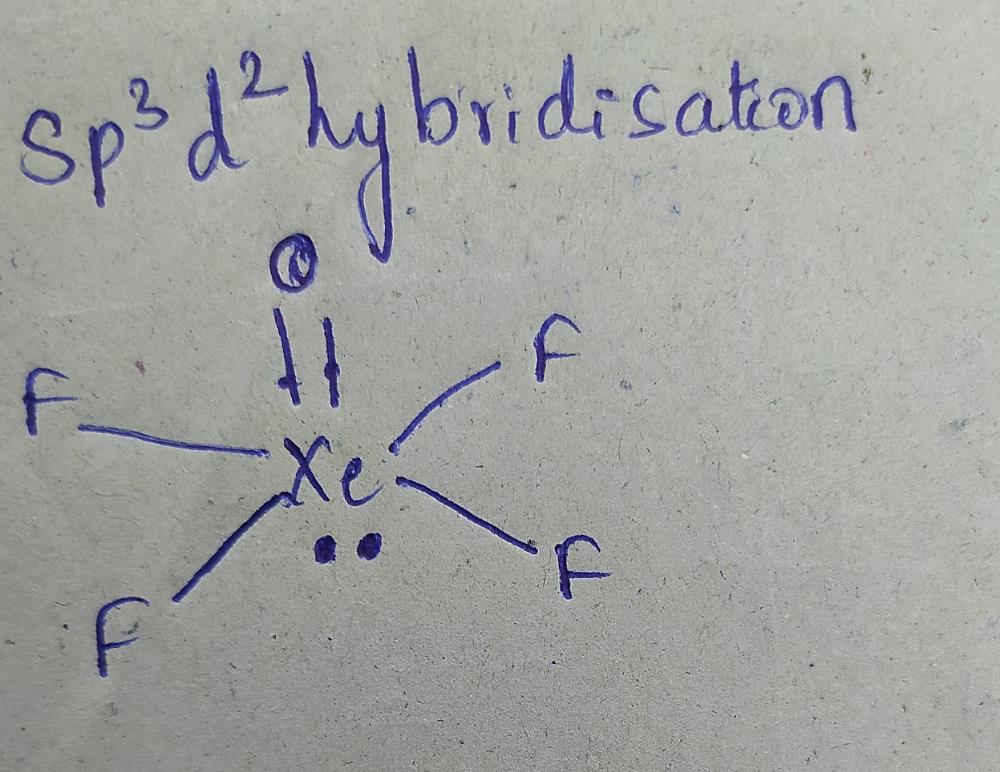 Sp³d² hybridisation
O
F F
Xe
F F